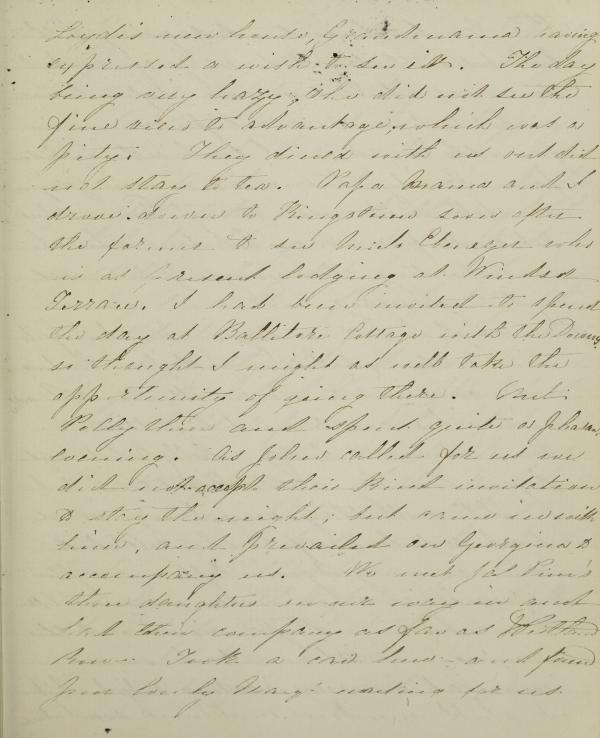 Loyd's new house, Grandmama having
expressed a wish to see it. The day
being very hazy, she did not see the
fine view to advantage, which was a
pity. They dined with us but did
not stay to tea. Papa Mama and I
drove down to Kingstown soon after
the former to see Uncle Ebenezer who
is at present lodging at Windsor
Terrace. I had been invited to spend
the day at Ballitore Cottage with the
so thought I might as well take the
opportunity of going there. Met
Polly there and spent quite a pleasant
evening. As John called for us we
did not accept their kind invitation
to stay the night; but came in with
him, and prevailed on Georgina to
accompany us. We met Jas Pim's
three daughters on our way in and
had their company as far as Westland
Row. Took a car home and found
waiting for us.